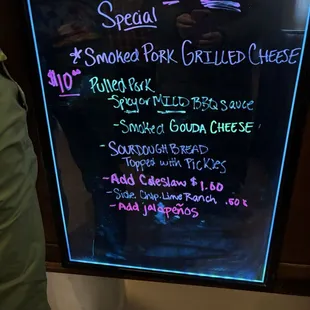 Special
*Smoked Pork Grilled Cheese
$10.00
Pulled Pork
-Spicy or MILD BBQ Sauce
-Smoked GOUDA CHEESE
-SOURDOUGH BREAD
Topped with Pickles
-Add Coleslaw $1.00
-Side Chip. Lime Ranch .50¢
-Add jalapeños